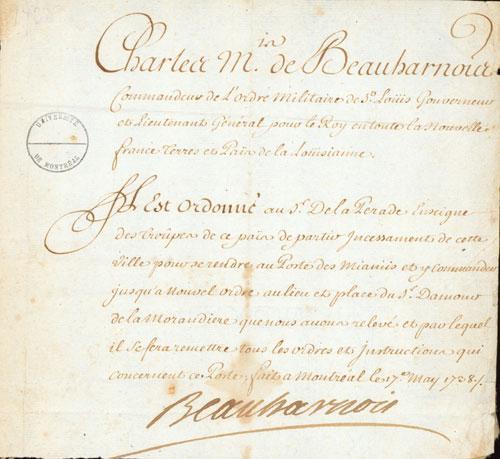 Charles M.is de Beauharnois
Commandeur de L'ordre Militaire de St. Loüis Gouverneur
et Lieutenant Général pour le Roy en toute la Nouvelle
france Terres et Païs de la Loüisianne.
UNIVERSITÉ
DE MONTRÉAL
Il Est ordonné au Sr. De la Perade Enseigne
des troupes de ce païs de partir Incessament de cette
Ville pour se rendre au Poste des Miamis et y Commander
jusqu'a Nouvel ordre au lieu et place du Sr. Damours
de la Morandiere que nous avons relevé et par lequel
il se fera remettre tous les ordres et Instructions qui
concernent ce Poste, fait a Montreal le 17e. May 1728 /.
Beauharnois